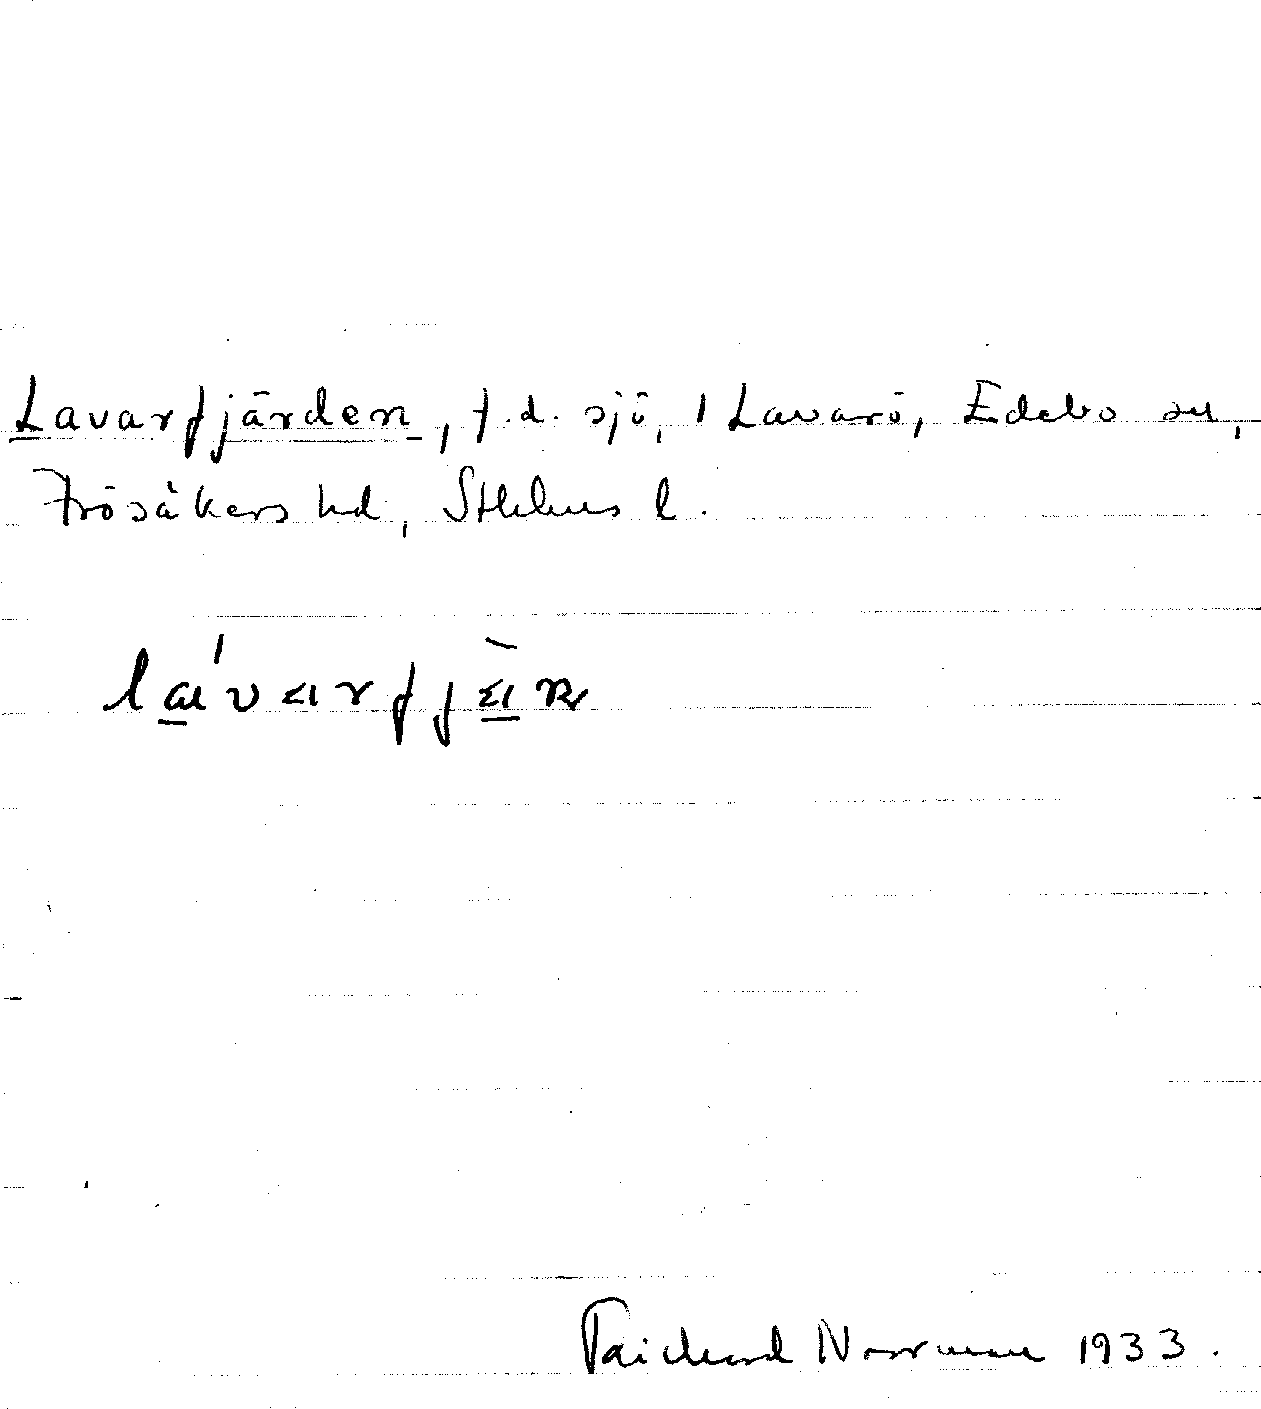 Lavarfjärden, f.d. sjö, i Lavarö, Edebo sn,
Frösåkers hd, Sthlms l.
Richard Norrman 1933.